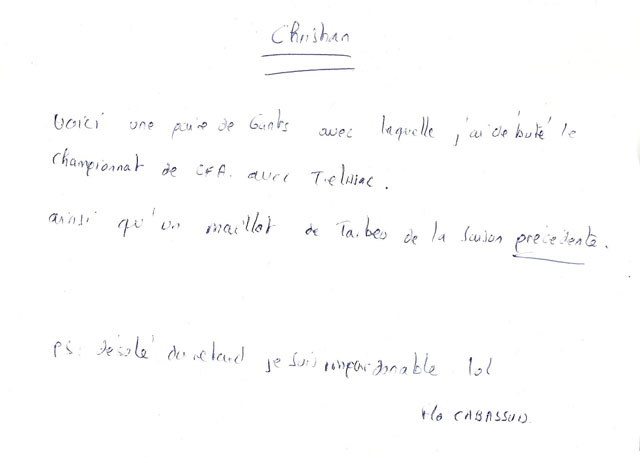 Christian
Voici une paire de Gants avec laquelle j'ai débuté le
championnat de CFA. avec Trelissac.
ainsi qu'un maillot de Tarbes de la saison précédente.
PS: désolé du retard je suis impardonnable lol
Flo CABASSUD